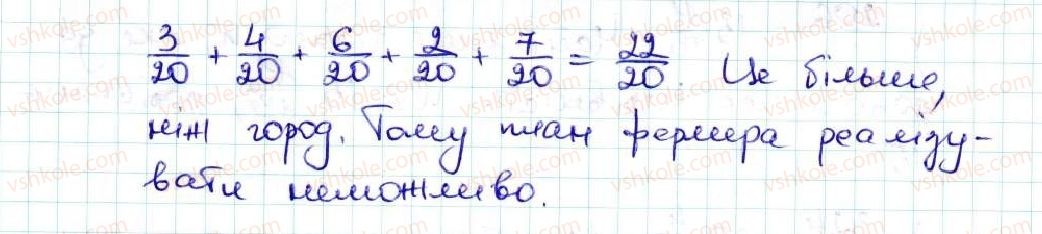 3/20 + 4/20 + 6/20 + 2/20 + 7/20 = 22/20. Це більше,
ніж город. Тому план фермера реалізу-
вати неможливо.